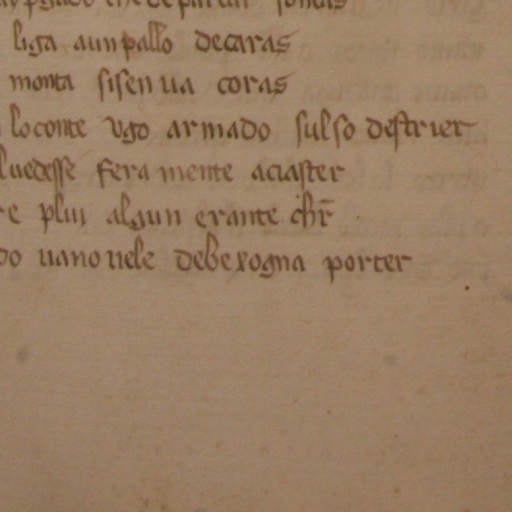 liga aun pallo decaras
monta sisen va coras
loconte vgo armado sulso destrier
luedesse feramente aciaster
e plui algun erante chr
do uano uele debexogna porter